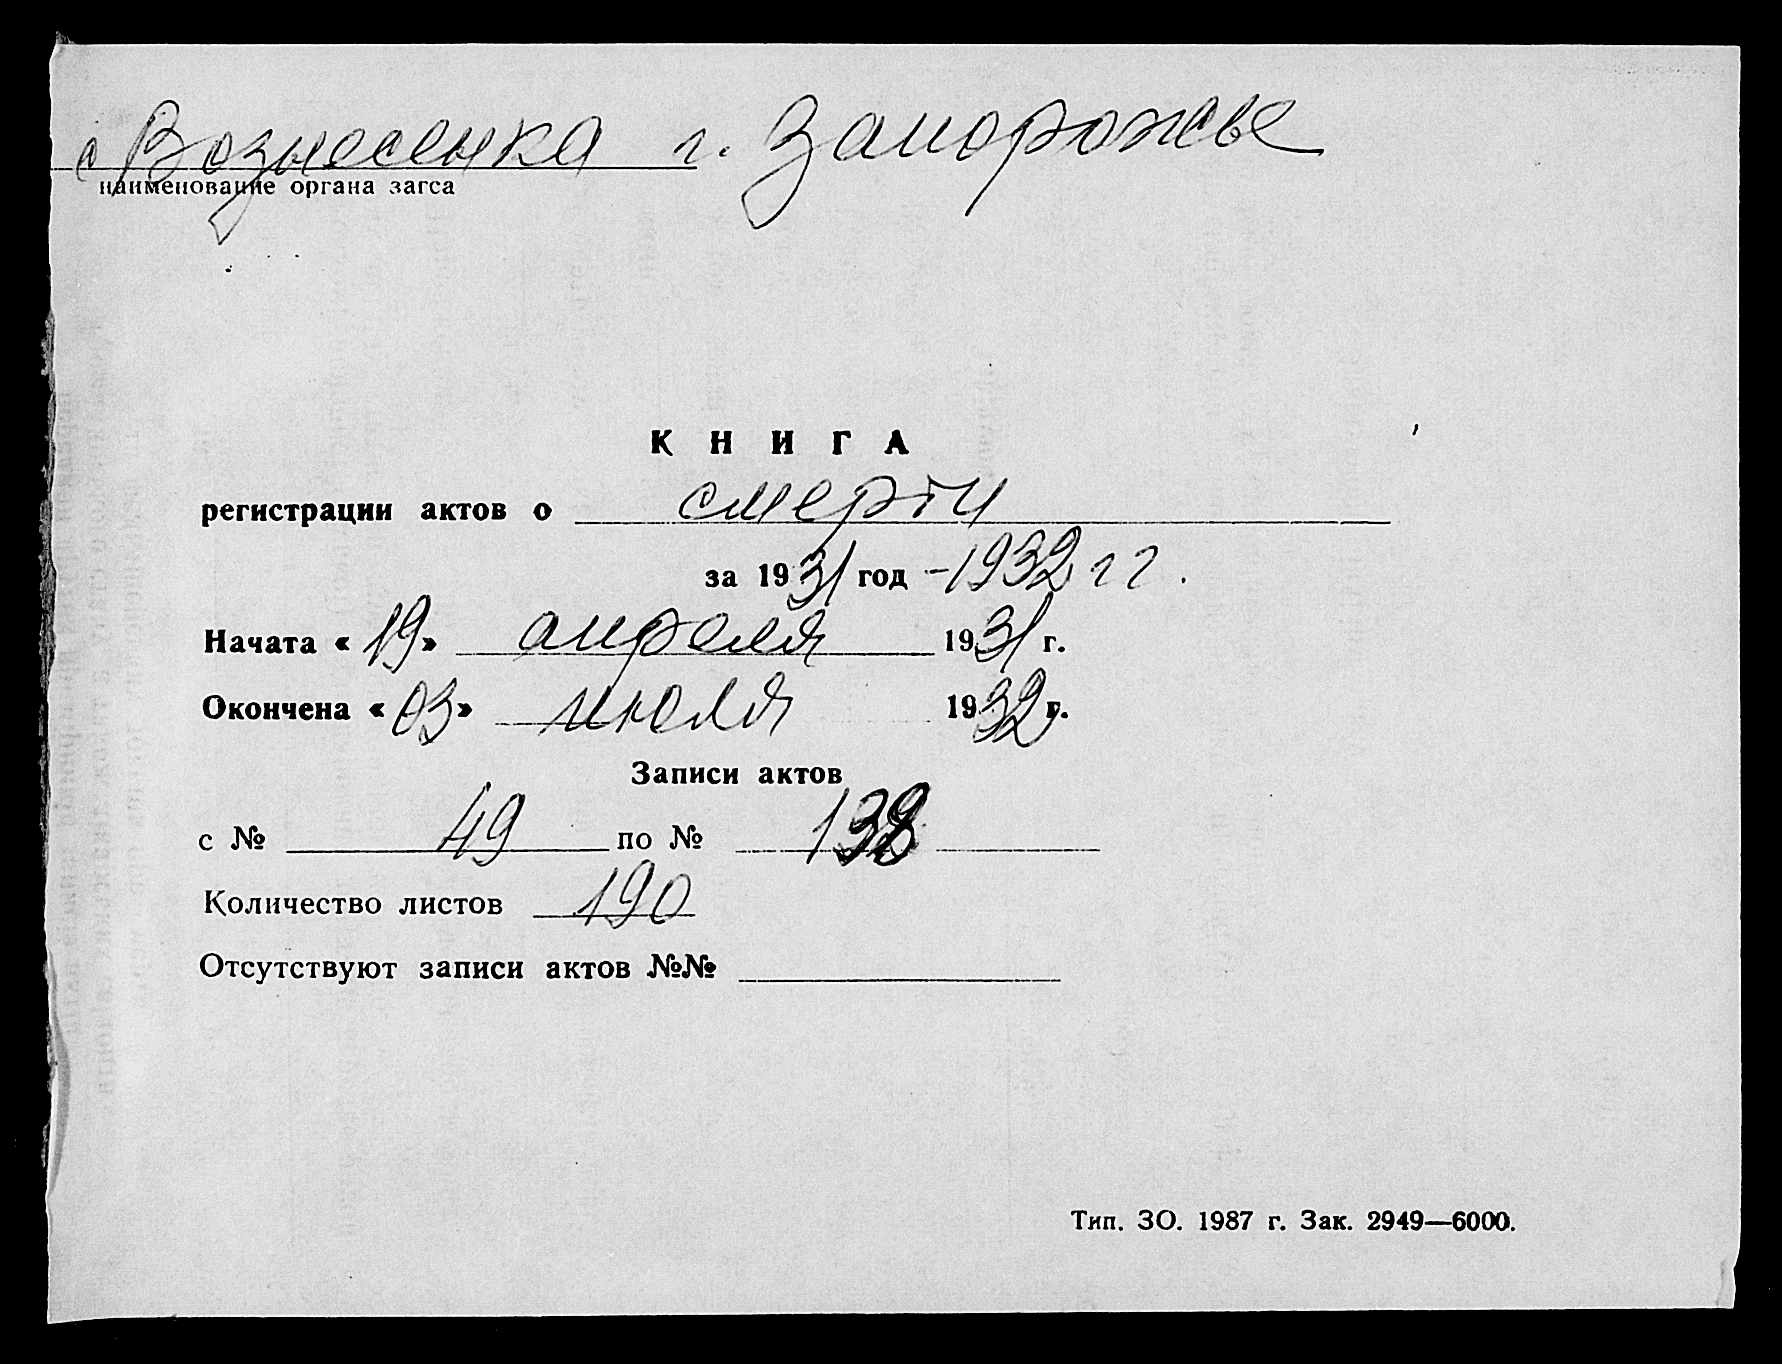 с Вознесенка г. Запорожье
наименование органа загса
КНИГА
регистрации актов о смерти
за 1931 год - 1932 г г.
Начата « 19 » апреля 1931 г.
Окончена « 03 » июля 1932 г.
Записи актов
с № 49 по №
Количество листов 190
Отсутствуют записи актов №№
Тип. ЗО. 1987 г. Зак. 2949—6000.